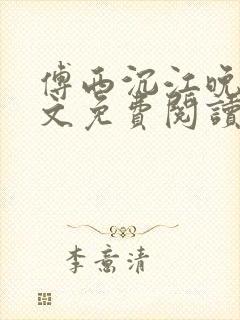 傅西沉江晚
文免費閱讀
李意清